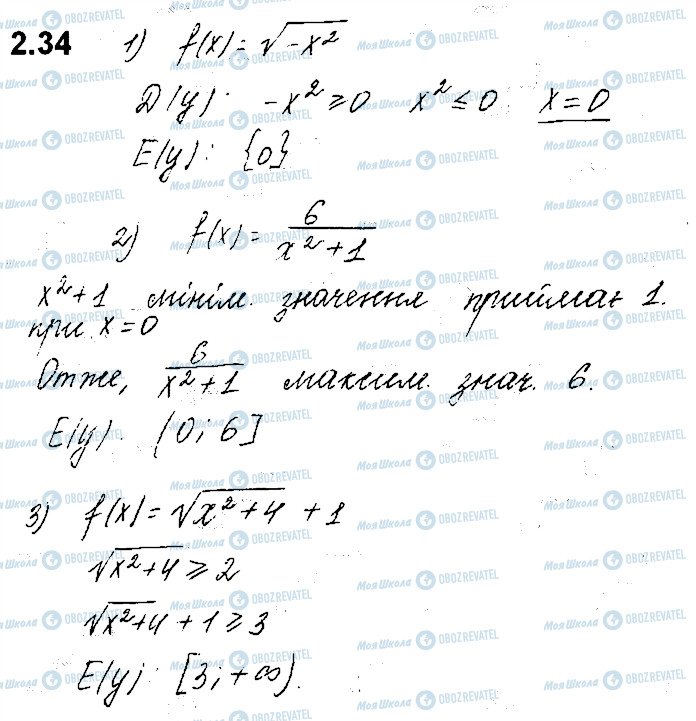 2.34 1) f(x) = √(-x²)
D(y): -x² ≥ 0 x² ≤ 0 x = 0
E(y): {0}
2) f(x) = 6/(x² + 1)
x² + 1 мінім. значення приймає 1.
при x = 0
Отже, 6/(x² + 1) максим. знач. 6.
E(y): (0; 6]
3) f(x) = √(x² + 4) + 1
√(x² + 4) ≥ 2
√(x² + 4) + 1 ≥ 3
E(y): [3; +∞).
Моя Школа OBOZREVATEL